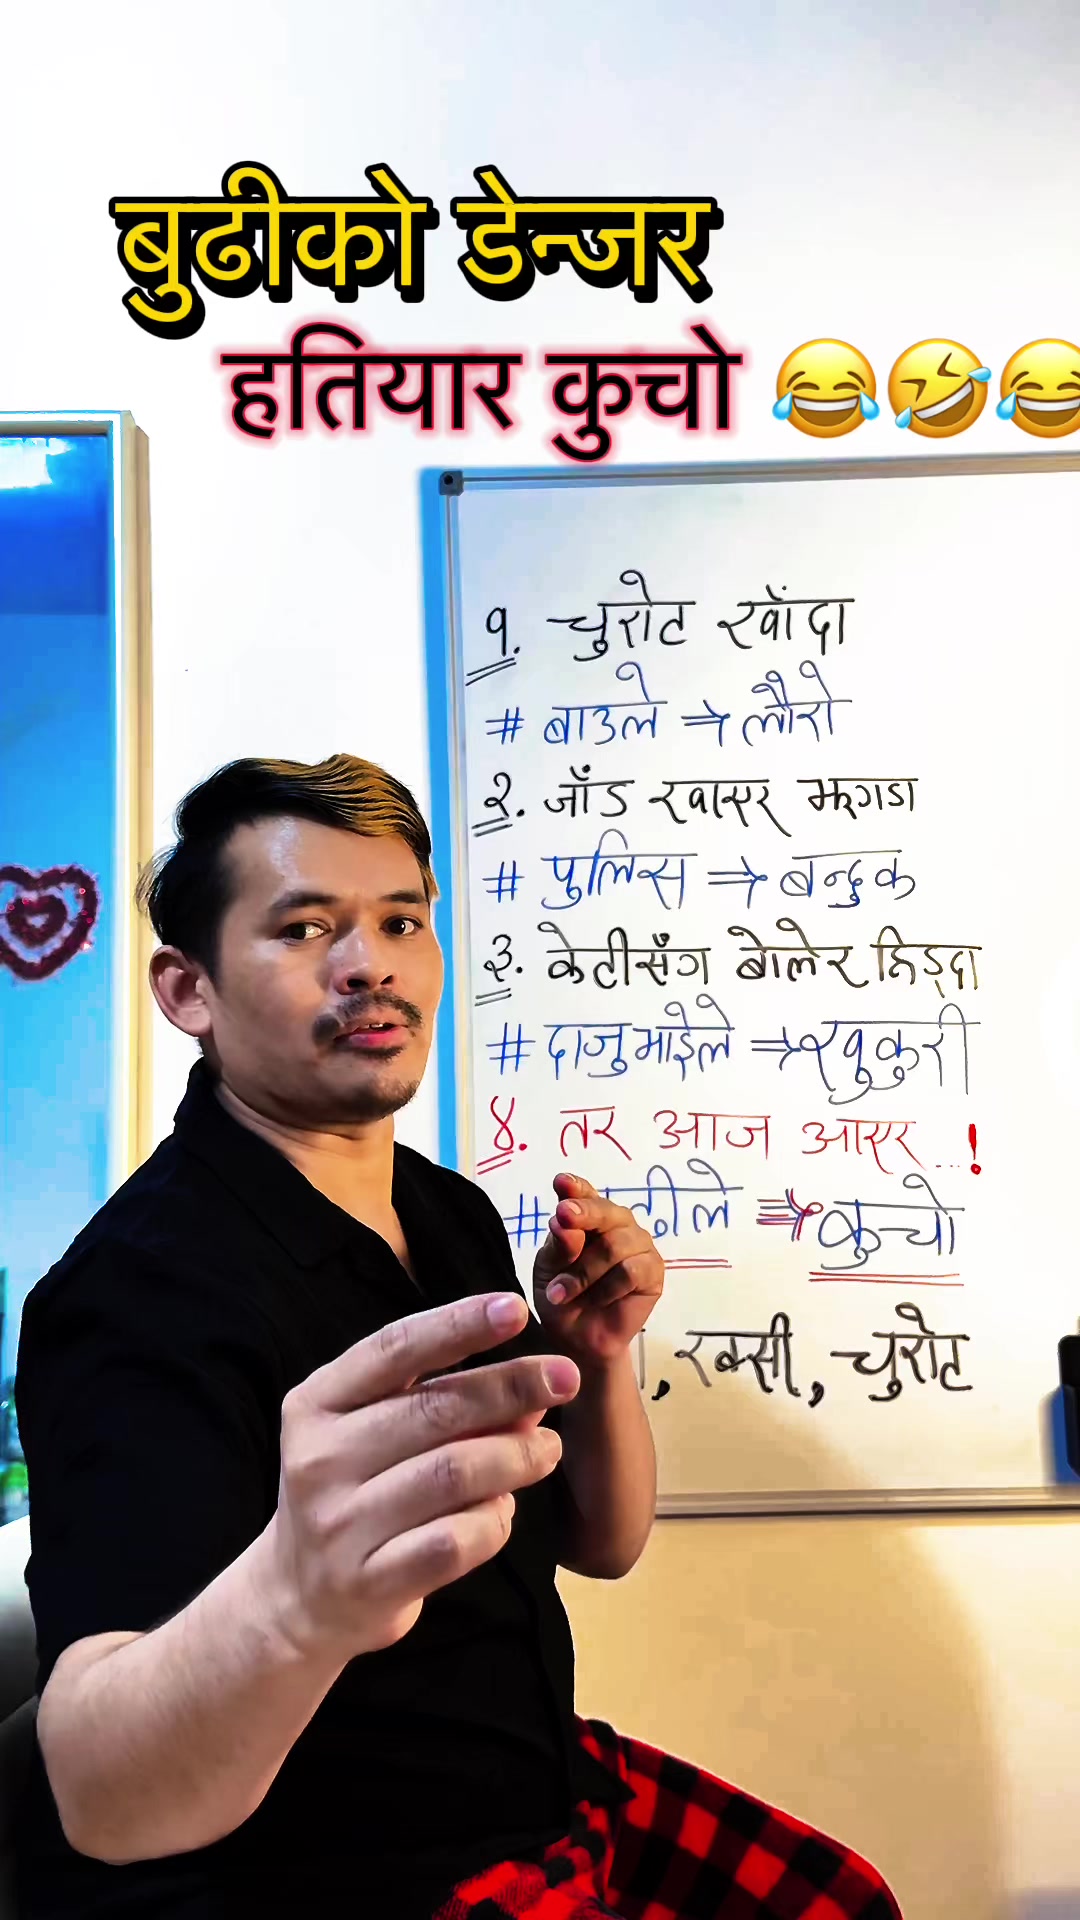 बुढीको डेन्जर
हतियार कुचो 😂🤣😂
१. चुरोट खाँदा
# बाउले ⇒ लौरो
२. जाँड खाएर झगडा
# पुलिस ⇒ बन्दुक
३. केटीसँग बोलेर हिड्दा
# दाजुभाईले ⇒ खुकुरी
४. तर आज आएर...!
# ⇒ कुचो
, रक्सी, चुरोट